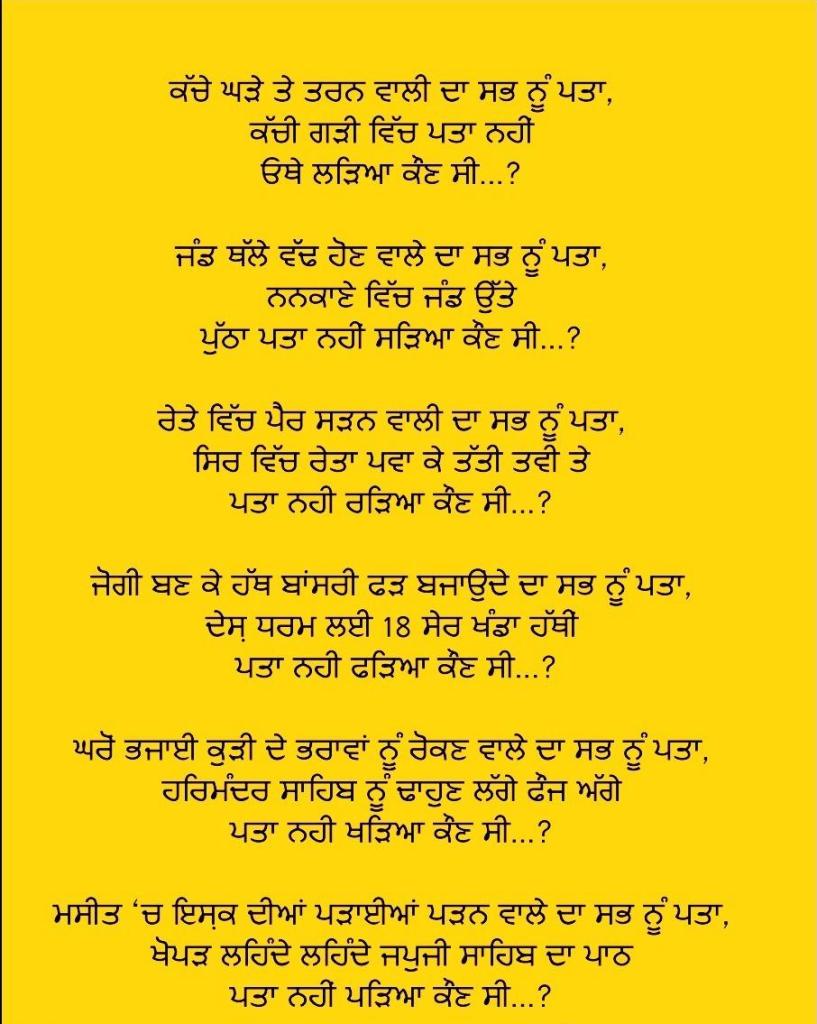 ਕੱਚੇ ਘੜੇ ਤੇ ਤਰਨ ਵਾਲੀ ਦਾ ਸਭ ਨੂੰ ਪਤਾ,
ਕੱਚੀ ਗੜੀ ਵਿੱਚ ਪਤਾ ਨਹੀਂ
ਓਥੇ ਲੜਿਆ ਕੌਣ ਸੀ...?
ਜੰਡ ਥੱਲੇ ਵੱਢ ਹੋਣ ਵਾਲੇ ਦਾ ਸਭ ਨੂੰ ਪਤਾ,
ਨਨਕਾਣੇ ਵਿੱਚ ਜੰਡ ਉੱਤੇ
ਪੁੱਠਾ ਪਤਾ ਨਹੀਂ ਸੜਿਆ ਕੌਣ ਸੀ...?
ਰੇਤੇ ਵਿੱਚ ਪੈਰ ਸੜਨ ਵਾਲੀ ਦਾ ਸਭ ਨੂੰ ਪਤਾ,
ਸਿਰ ਵਿੱਚ ਰੇਤਾ ਪਵਾ ਕੇ ਤੱਤੀ ਤਵੀ ਤੇ
ਪਤਾ ਨਹੀ ਰੜਿਆ ਕੌਣ ਸੀ...?
ਜੋਗੀ ਬਣ ਕੇ ਹੱਥ ਬਾਂਸਰੀ ਫੜ ਬਜਾਉਂਦੇ ਦਾ ਸਭ ਨੂੰ ਪਤਾ,
ਦੇਸ਼ ਧਰਮ ਲਈ 18 ਸੇਰ ਖੰਡਾ ਹੱਥੀਂ
ਪਤਾ ਨਹੀ ਫੜਿਆ ਕੌਣ ਸੀ...?
ਘਰੋਂ ਭਜਾਈ ਕੁੜੀ ਦੇ ਭਰਾਵਾਂ ਨੂੰ ਰੋਕਣ ਵਾਲੇ ਦਾ ਸਭ ਨੂੰ ਪਤਾ,
ਹਰਿਮੰਦਰ ਸਾਹਿਬ ਨੂੰ ਢਾਹੁਣ ਲੱਗੇ ਫੌਜ ਅੱਗੇ
ਪਤਾ ਨਹੀ ਖੜਿਆ ਕੌਣ ਸੀ...?
ਮਸੀਤ ‘ਚ ਇਸ਼ਕ ਦੀਆਂ ਪੜਾਈਆਂ ਪੜਨ ਵਾਲੇ ਦਾ ਸਭ ਨੂੰ ਪਤਾ,
ਖੋਪੜ ਲਹਿੰਦੇ ਲਹਿੰਦੇ ਜਪੁਜੀ ਸਾਹਿਬ ਦਾ ਪਾਠ
ਪਤਾ ਨਹੀਂ ਪੜਿਆ ਕੌਣ ਸੀ...?